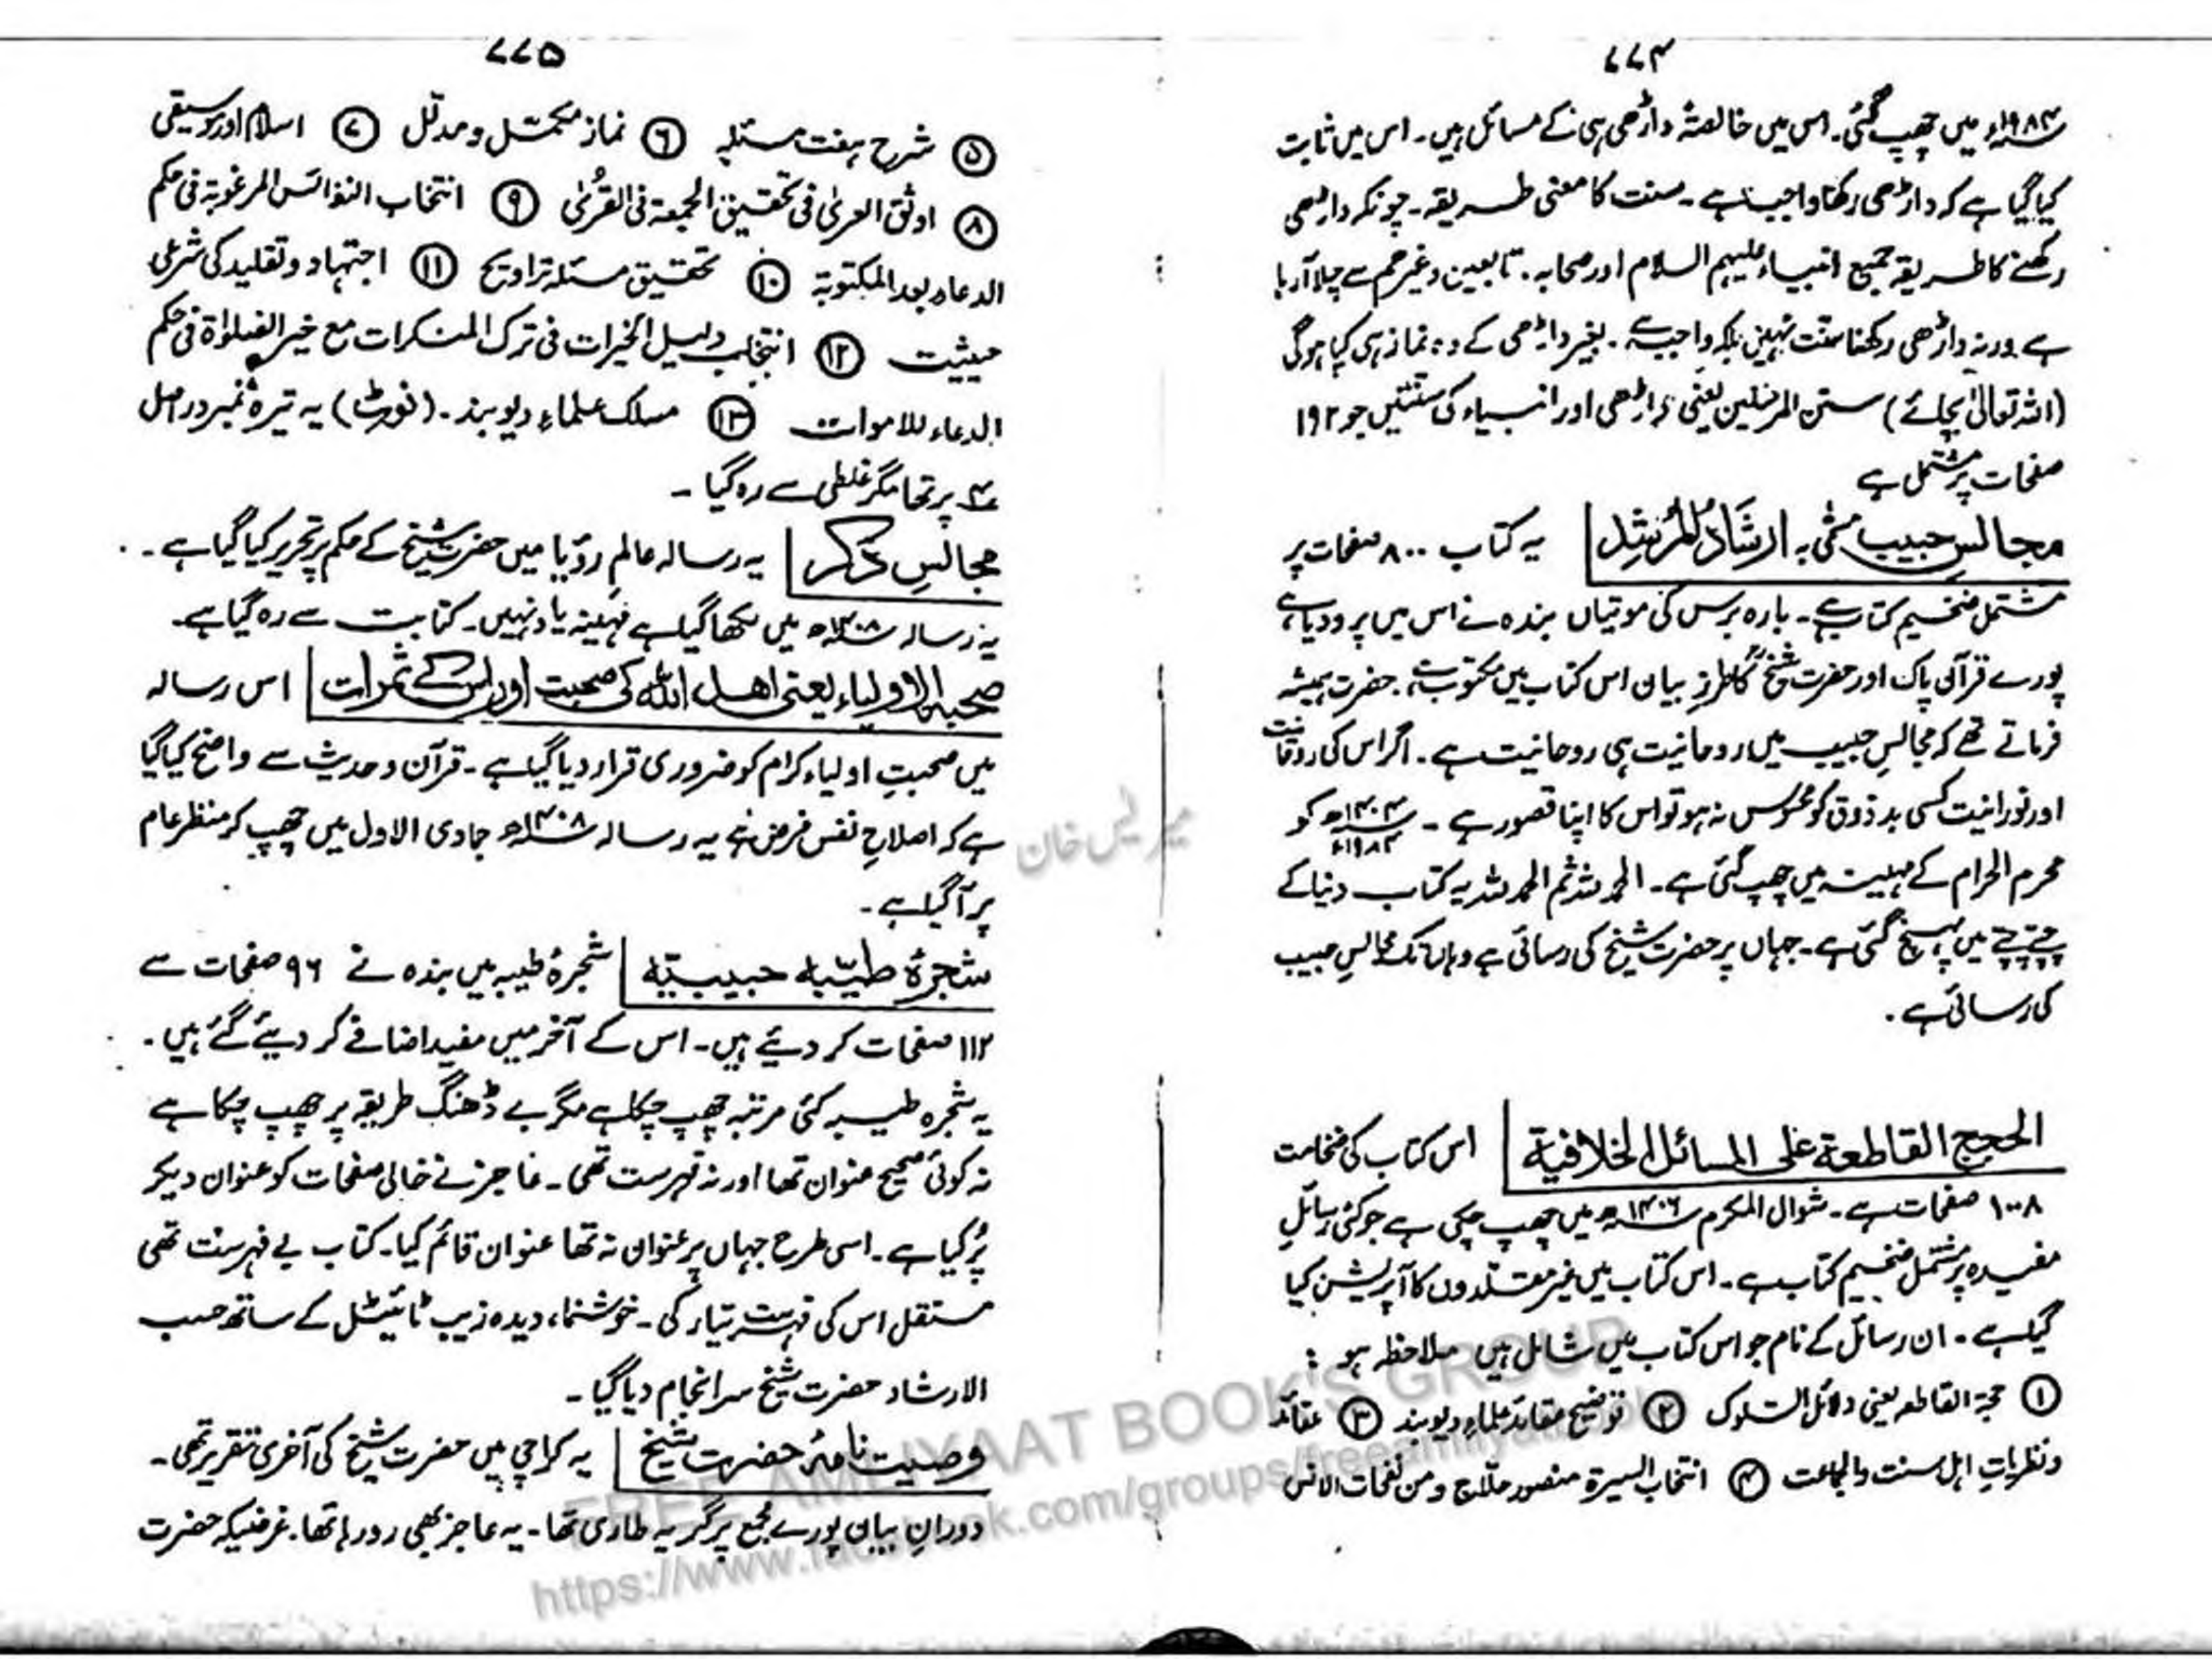 ۷۷۴
۱۹۸۴ء میں چھپ گئی۔ اس میں خالصۃً داڑھی ہی کے مسائل ہیں۔ اس میں ثابت
کیا گیا ہے کہ داڑھی رکھنا واجب ہے۔ سنت کا معنی طریقہ۔ چونکہ داڑھی
رکھنے کا طریقہ جمیع انبیاء علیہم السلام اور صحابہ۔ تابعین وغیرھم سے چلا آرہا
ہے ورنہ داڑھی رکھنا سنت نہیں بلکہ واجب ہے۔ بغیر داڑھی کے نماز ہی کیا ہوگی
(اللہ تعالیٰ بچائے) سنن المرسلین یعنی داڑھی اور انبیاء کی سنتیں جو ۱۹۲
صفحات پر مشتمل ہے
مجالسِ حبیب مسمّٰی بہ ارشاد المُرشِد یہ کتاب ۸۰۰ صفحات پر
مشتمل ضخیم کتاب ہے۔ بارہ برس کی موتیاں بندہ نے اس میں پرو دیا ہے
پورے قرآن پاک اور حضرت شیخؒ کا طرزِ بیان اس کتاب میں مکتوب ہے۔ حضرت ہمیشہ
فرماتے تھے کہ مجالسِ حبیب میں روحانیت ہی روحانیت ہے۔ اگر اس کی روحانیت
اور نورانیت کسی بدذوق کو محسوس نہ ہو تو اس کا اپنا قصور ہے۔ ۱۴۰۴ھ ۱۹۸۳ء کو
محرم الحرام کے مہینہ میں چھپ گئی ہے۔ الحمد للہ ثم الحمد للہ یہ کتاب دنیا کے
چپے چپے میں پہنچ گئی ہے۔ جہاں پر حضرت شیخ کی رسائی ہے وہاں تک مجالسِ حبیب
کی رسائی ہے۔
الحجج القاطعة علی المسائل الخلافیة اس کتاب کی ضخامت
۱۰۰۸ صفحات ہے۔ شوال المکرم ۱۴۰۶ھ میں چھپ چکی ہے جو کئی رسائلِ
مفیدہ پر مشتمل ضخیم کتاب ہے۔ اس کتاب میں غیر مقلدوں کا آپریشن کیا
گیا ہے۔ ان رسائل کے نام جو اس کتاب میں شامل ہیں ملاحظہ ہو :
① حجۃ القاطعہ یعنی دلائل السلوک ② توضیح عقائد علماءِ دیوبند ③ عقائد
ونظریاتِ اہل سنت والجماعت ④ انتخاب السیرۃ منصور حلّاج ومن نفحات الانس
۷۷۵
⑤ شرح ہفت مسئلہ ⑥ نماز مکمّل ومدلّل ⑦ اسلام اور موسیقی
⑧ اوثق العریٰ فی تحقیق الجمعۃ فی القُریٰ ⑨ انتخاب النفائس المرغوبۃ فی حکم
الدعاء بعد المکتوبۃ ⑩ تحقیق مسئلہ تراویح ⑪ اجتہاد وتقلید کی شرعی
حیثیت ⑫ انتخاب دلیل الخیرات فی ترک المنکرات مع خیر الصلوٰۃ فی حکم
الدعاء للاموات ⑬ مسلک علماءِ دیوبند۔ (نوٹ) یہ تیرہ نمبر دراصل
۴ پر تھا مگر غلطی سے رہ گیا۔
مجالسِ ذکر یہ رسالہ عالمِ رؤیا میں حضرت شیخؒ کے حکم پر تحریر کیا گیا ہے۔
یہ رسالہ ۱۴۰۸ھ میں لکھا گیا ہے مہینہ یاد نہیں۔ کتابت سے رہ گیا ہے۔
صحبۃ الاولیاء یعنی اھل اللہ کی صحبت اور اس کے ثمرات اس رسالہ
میں صحبتِ اولیاء کرام کو ضروری قرار دیا گیا ہے۔ قرآن وحدیث سے واضح کیا گیا
ہے کہ اصلاحِ نفس فرض ہے یہ رسالہ ۱۴۰۸ھ جمادی الاول میں چھپ کر منظر عام
پر آگیا ہے۔
شجرۂ طیّبہ حبیبیّہ شجرۂ طیبہ میں بندہ نے ۹۶ صفحات سے
۱۱۲ صفحات کر دیئے ہیں۔ اس کے آخر میں مفید اضافے کر دیئے گئے ہیں۔
یہ شجرہ طیبہ کئی مرتبہ چھپ چکا ہے مگر بے ڈھنگ طریقہ پر چھپ چکا ہے
نہ کوئی صحیح عنوان تھا اور نہ فہرست تھی۔ عاجز نے خالی صفحات کو عنوان دیکر
پُر کیا ہے۔ اسی طرح جہاں پر عنوان نہ تھا عنوان قائم کیا۔ کتاب بے فہرست تھی
مستقل اس کی فہرست تیار کی۔ خوشنما، دیدہ زیب ٹائیٹل کے ساتھ حسب
الارشاد حضرت شیخ سرانجام دیا گیا۔
وصیت نامۂ حضرت شیخ یہ کراچی میں حضرت شیخ کی آخری تقریر تھی۔
دورانِ بیان پورے مجمع پر گریہ طاری تھا۔ یہ عاجز بھی رو رہا تھا۔ غرضیکہ حضرت
FREE AMLIYAAT BOOK'S GROUP
https://www.facebook.com/groups/freeamliyaatbooks